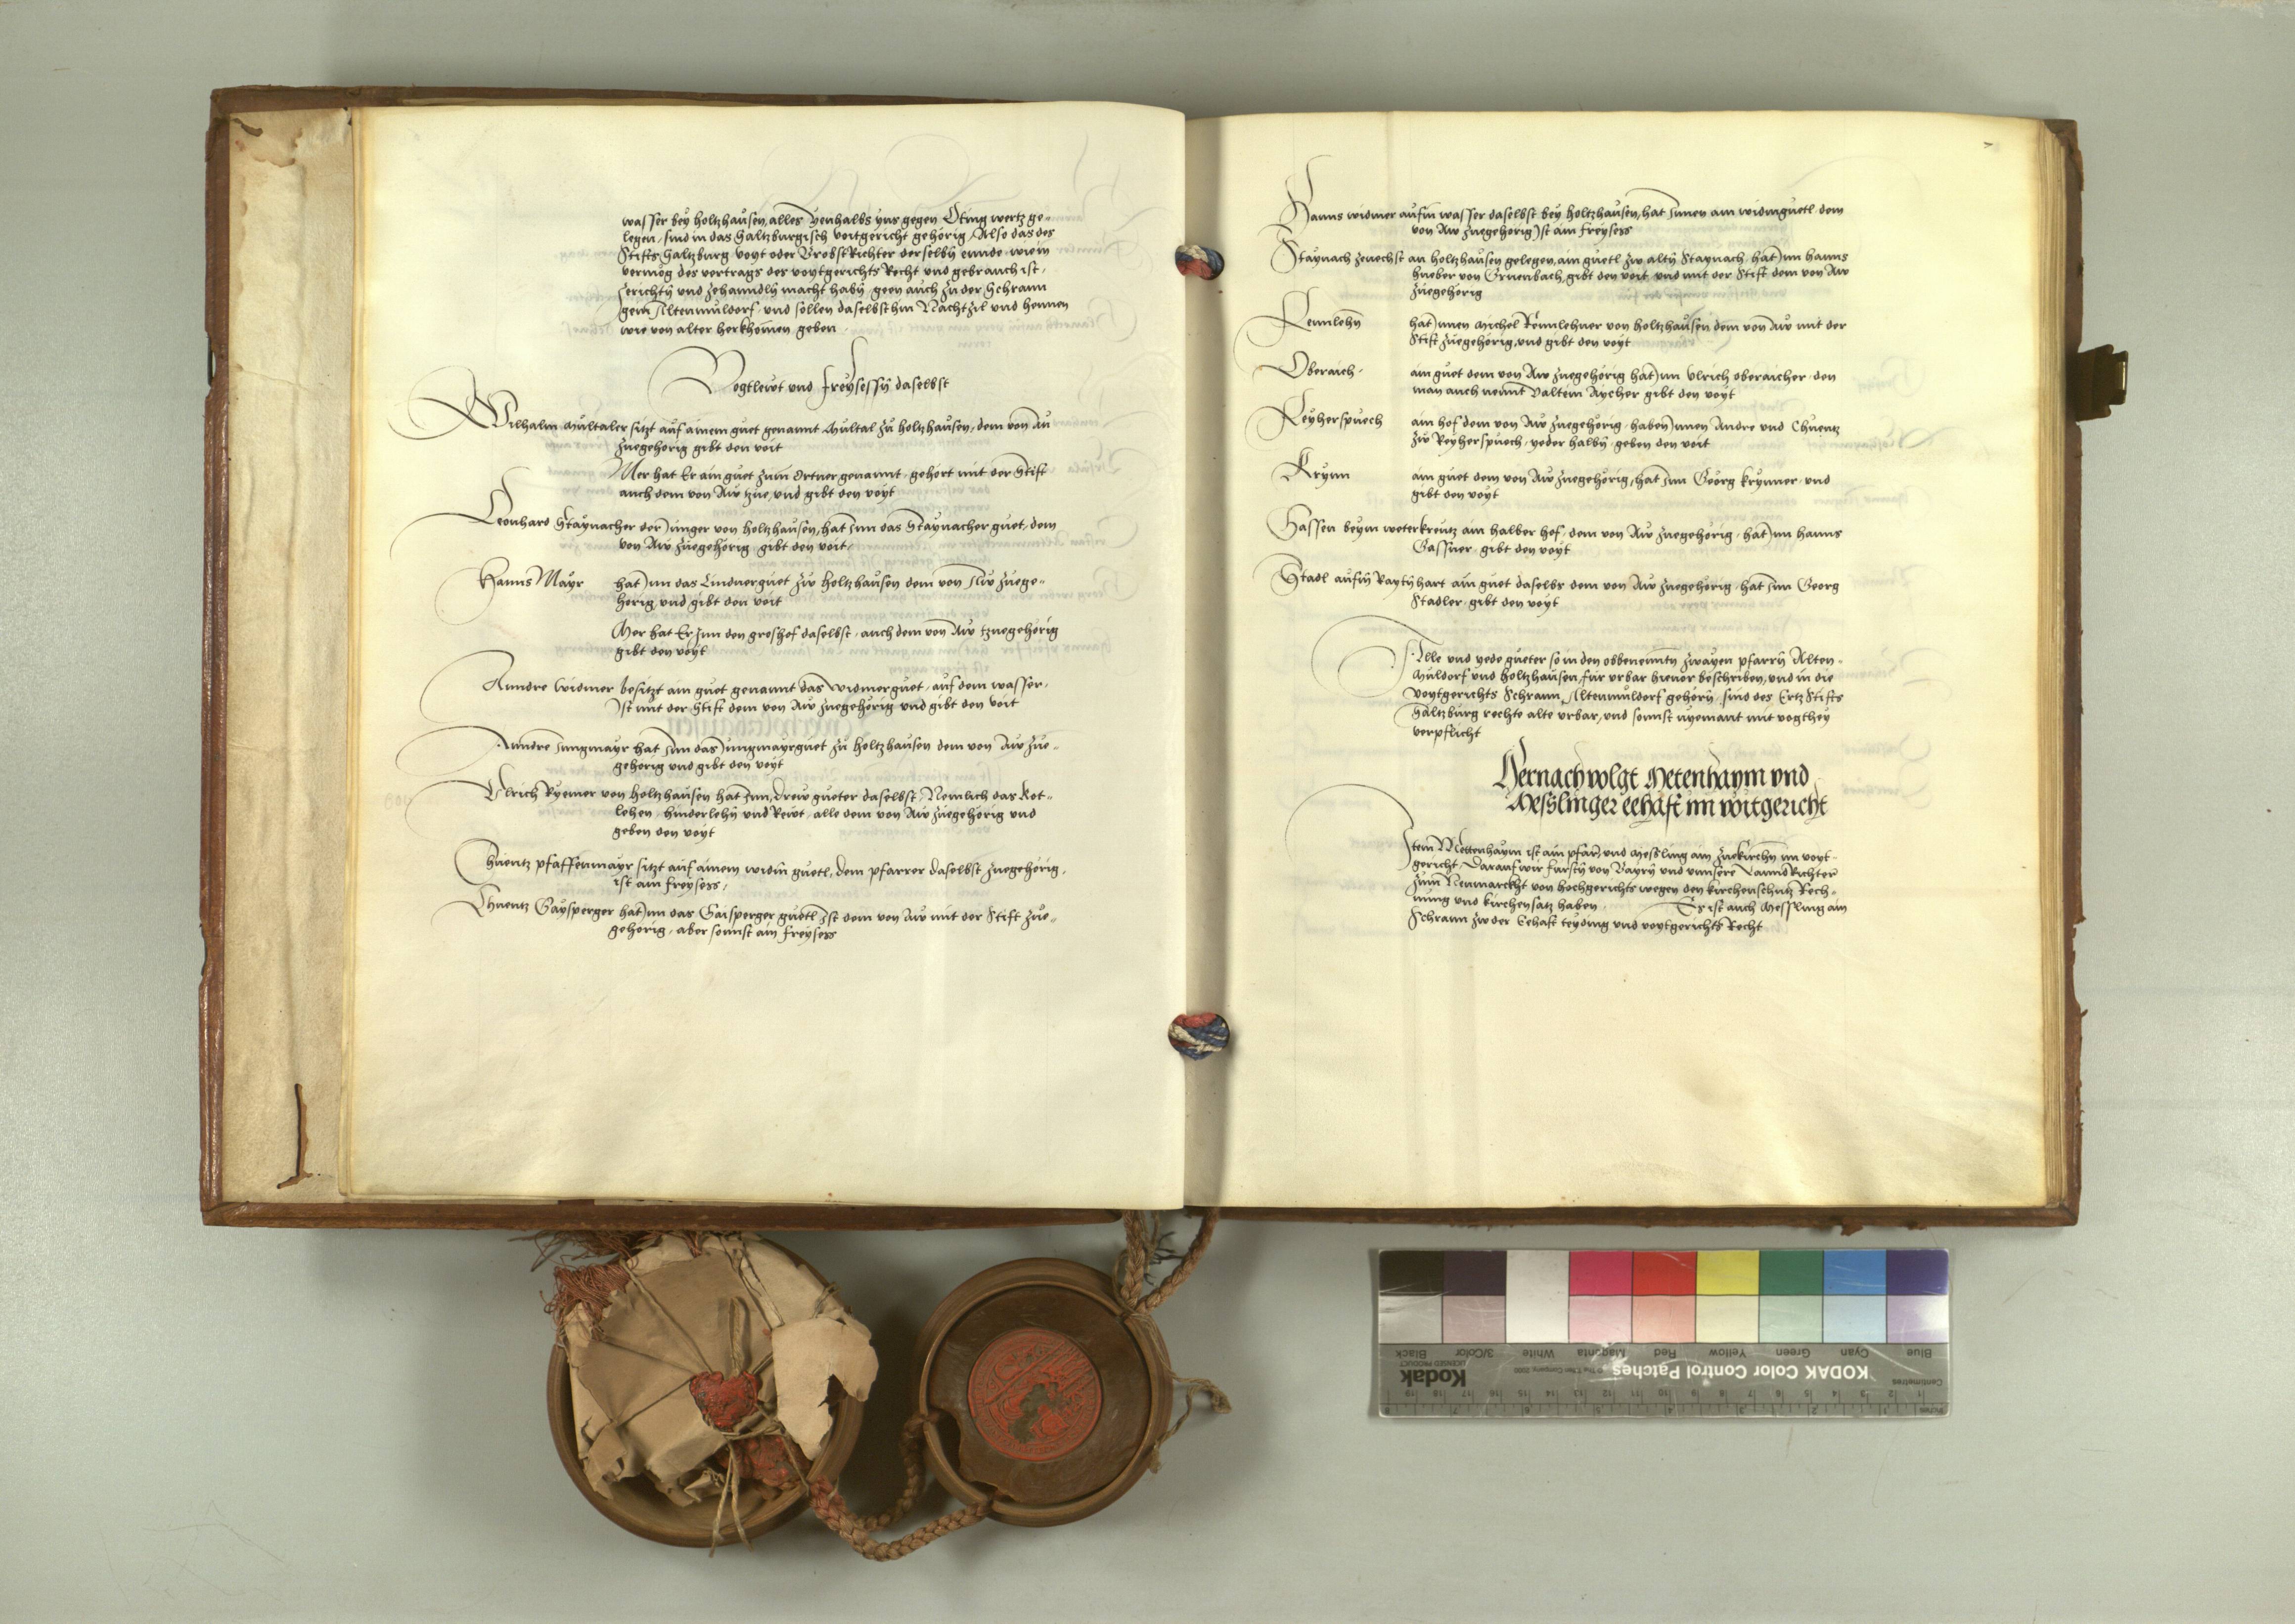 wasser bey holtzhausen, alles yenhalbs yns gegen Öting wertz ge-
legen, sind in das Saltzburgisch voitgericht gehörig, Also das des
Stifts Saltzburg voyt oder BrobstRichter derselbn ennde, wie in
vermög des vertrags des voytgerichts Recht und gebrauch ist,
zerichtn und zehanndln macht habn, geen auch zu der Schrann
gein Altenmuldorf, und sollen daselbsthin Nachtzil und hennen
wie von alter herkhomen geben
Vogtlewt und freysessn daselbst
Wilhalm Multaler sitzt auf ainem guet genannt Multal zu holtzhausen, dem von Au
zuegehörig gibt den voit
Mer hat Er ain guet zum Ortner genannt, gehört mit der Stift
auch dem von Aw tzue, und gibt den voyt
Leonhard Staynacher der Junger von holtzhausen, hat Inn das Staynacher guet, dem
von Aw zuegehörig, gibt den voit
Hanns Mayr hat Inn das Lindnerguet zw holtzhausen dem von Aw zuege-
hörig, und gibt den voit
Mer hat Er Inn den groshof daselbst, auch dem von Aw tzuegehörig
gibt den voyt
Anndre Widmer besitzt ain guet genannt das Widmerguet, auf dem wasser,
Ist mit der Stift dem von Aw zuegehörig und gibt den voit
Anndre Jungmayr hat Inn das Jungmayrguet zu holtzhausen dem von Aw zue-
gehörig und gibt den voyt
Ulrich Ryemer von holtzhausen hat Inn, drew gueter daselbst, Nemlich das Rot-
lehen, hinderlehn und Rewt, alle dem von Aw zuegehörig und
geben den voyt
Chuentz pfaffenmayr sitzt auf ainem widm guetl, dem pfarrer daselbst zuegehörig,
ist ain freysess,
Chuentz Gaysperger hat Inn das Gaisperger guetl Ist dem von Aw mit der Stift zue-
gehörig, aber sonnst ain freysess
Hanns widmer aufm wasser daselbst bey holtzhausen, hat Innen ain widmguetl dem
von Aw zuegehörig Ist ain freysess
Staynach zenechst an holtzhausen gelegen, ain guetl zw altn Staynach, hat Inn hanns
hueber von Gruenbach, gibt den voit, und mit der Stift dem von Aw
zuegehörig
Remlehn hat Innen Michel Remlehner von holtzhausen dem von Aw mit der
Stift zuegehörig, und gibt den voyt
Oberaich, ain guet dem von Aw zuegehörig hat Inn Ulrich oberaicher, den
man auch nennt Valtein Aycher gibt den voyt
Reyherspuech ain hof dem von Aw zuegehörig, haben Innen Andre und Chuentz
zw Reyherspuech, yeder halbn, geben den voit
Krynn ain guet dem von Aw zuegehörig, hat Inn Georg krynner, und
gibt den voyt
Gassen beym weterkreutz ain halber hof, dem von Aw zuegehörig, hat Inn hanns
Gassner, gibt den voyt
Stadl aufm Raytnhart ain guet daselbs dem von Aw zuegehörig, hat Inn Georg
Stadler, gibt den voyt
Alle und yede gueter so in den obbenenntn zwayen pfarrn Alten-
muldorf und holtzhausen, für urbar hievor beschriben, und in die
voytgerichts Schrann, Altenmuldorf gehörn, sind des Ertz Stifts
Saltzburg rechte alte urbar, und sonnst nyemant mit vogthey
verpflicht
Hernach volgt Metenhaym vnd
Messlinger eehaft im voitgericht
Item Mettenhaym ist ain pfarr, und Messling ain zuekirchn im voyt-
gericht, Darauf wir fürstn von Bayrn und unnsere LanndRichter
zum Neumarckht von hochgerichts wegen den kirchenschutz Rech-
nung und kirchensatz haben. Es ist auch Messling ain
Schrann zw der Eehaft teyding und voytgerichts Recht
KODAK Color Control Patches
Kodak
LICENSED PRODUCT
Blue Cyan Green Yellow Red Magenta White 3/Color Black
Centimetres
Inches